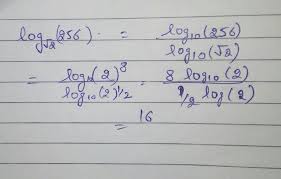 log√2(256) = log10(256) / log10(√2)
= log10(2)^8 / log10(2)^1/2 = 8 log10(2) / 1/2 log(2)
= 16